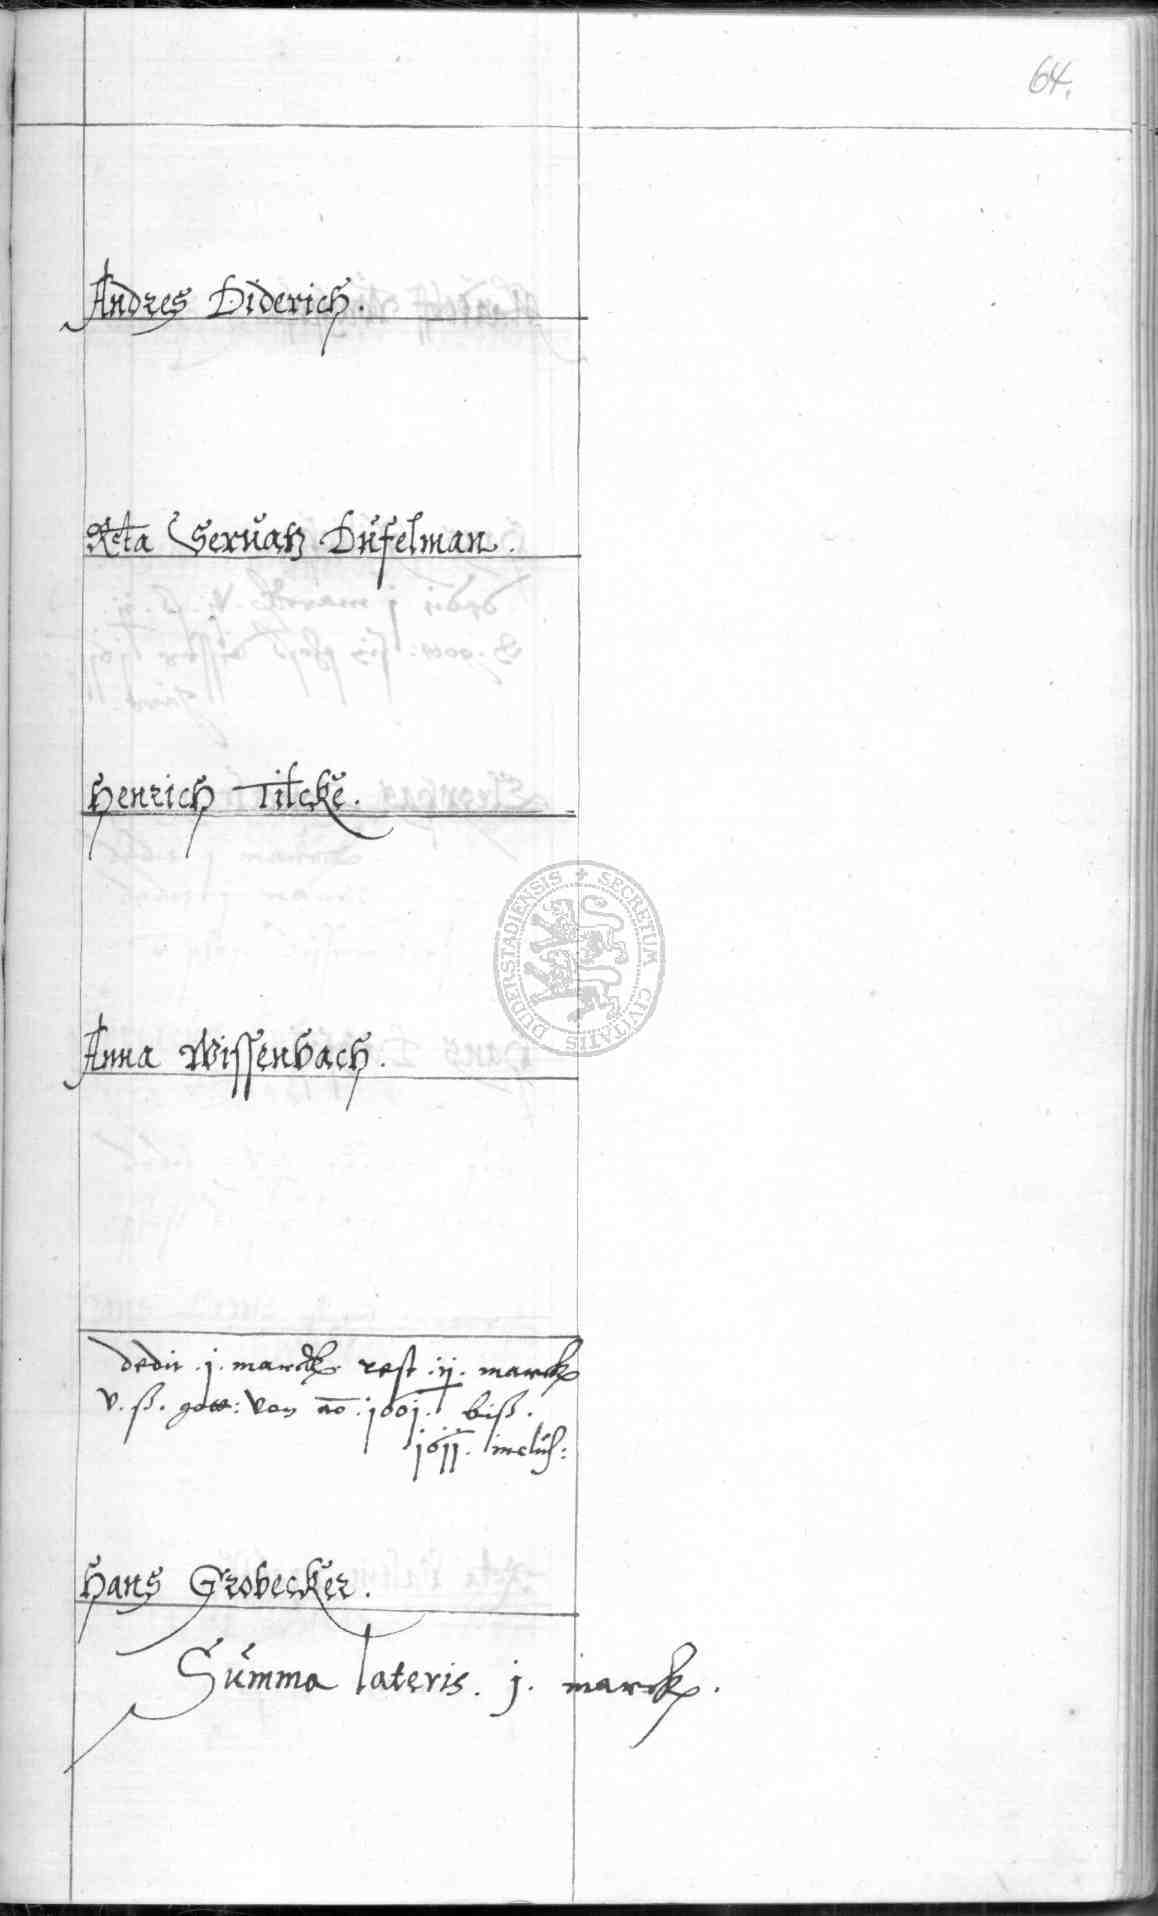 64.
Andres Diderich.
Rcta Servatz Dufelman.
Henrich Tilcke.
DUDERSTADIENSIS + SECRETUM CIVITATIS
Anna Wissenbach.
dedit .j. marck rest .ij. marck
v. ß. gott: von ao .1601. biß.
1611. inclus:
Hans Grobecker.
Summa lateris . j . marck .